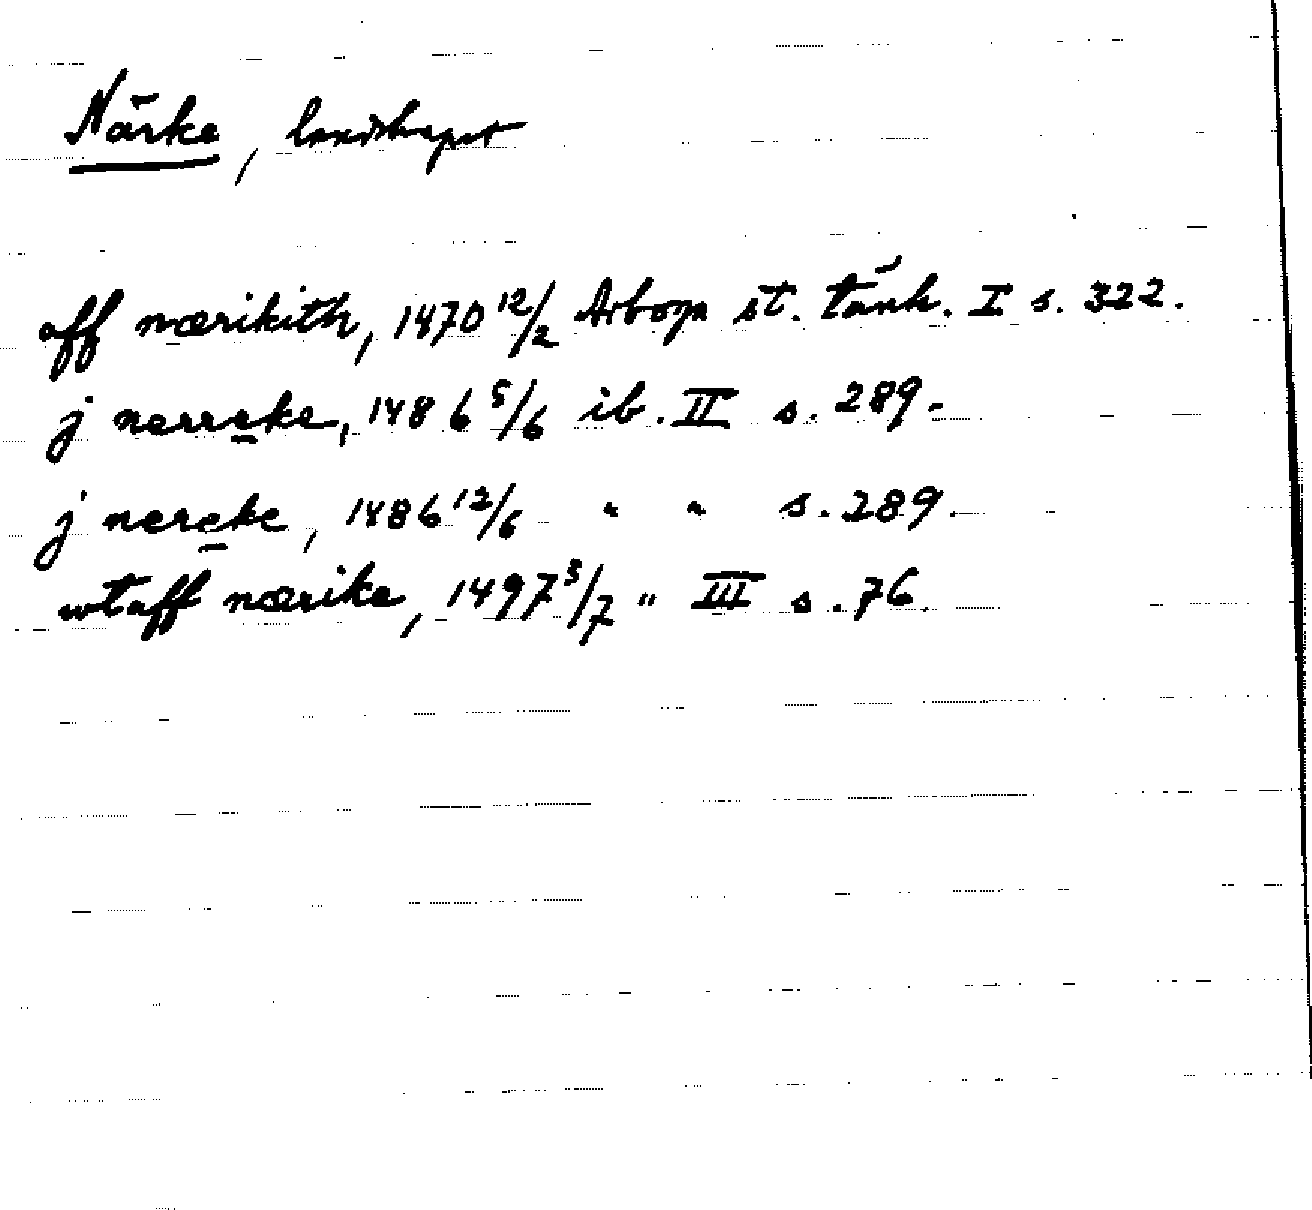 Närke, landskapet
off nærikith, 1470 12/2 Arboga st. tänk. I s. 322.
j nerreke, 1486 5/6 ib. II s. 289.
j nereke, 1486 12/6 " " s. 289.
wtaff nærike, 1497 3/7 " III s. 76.